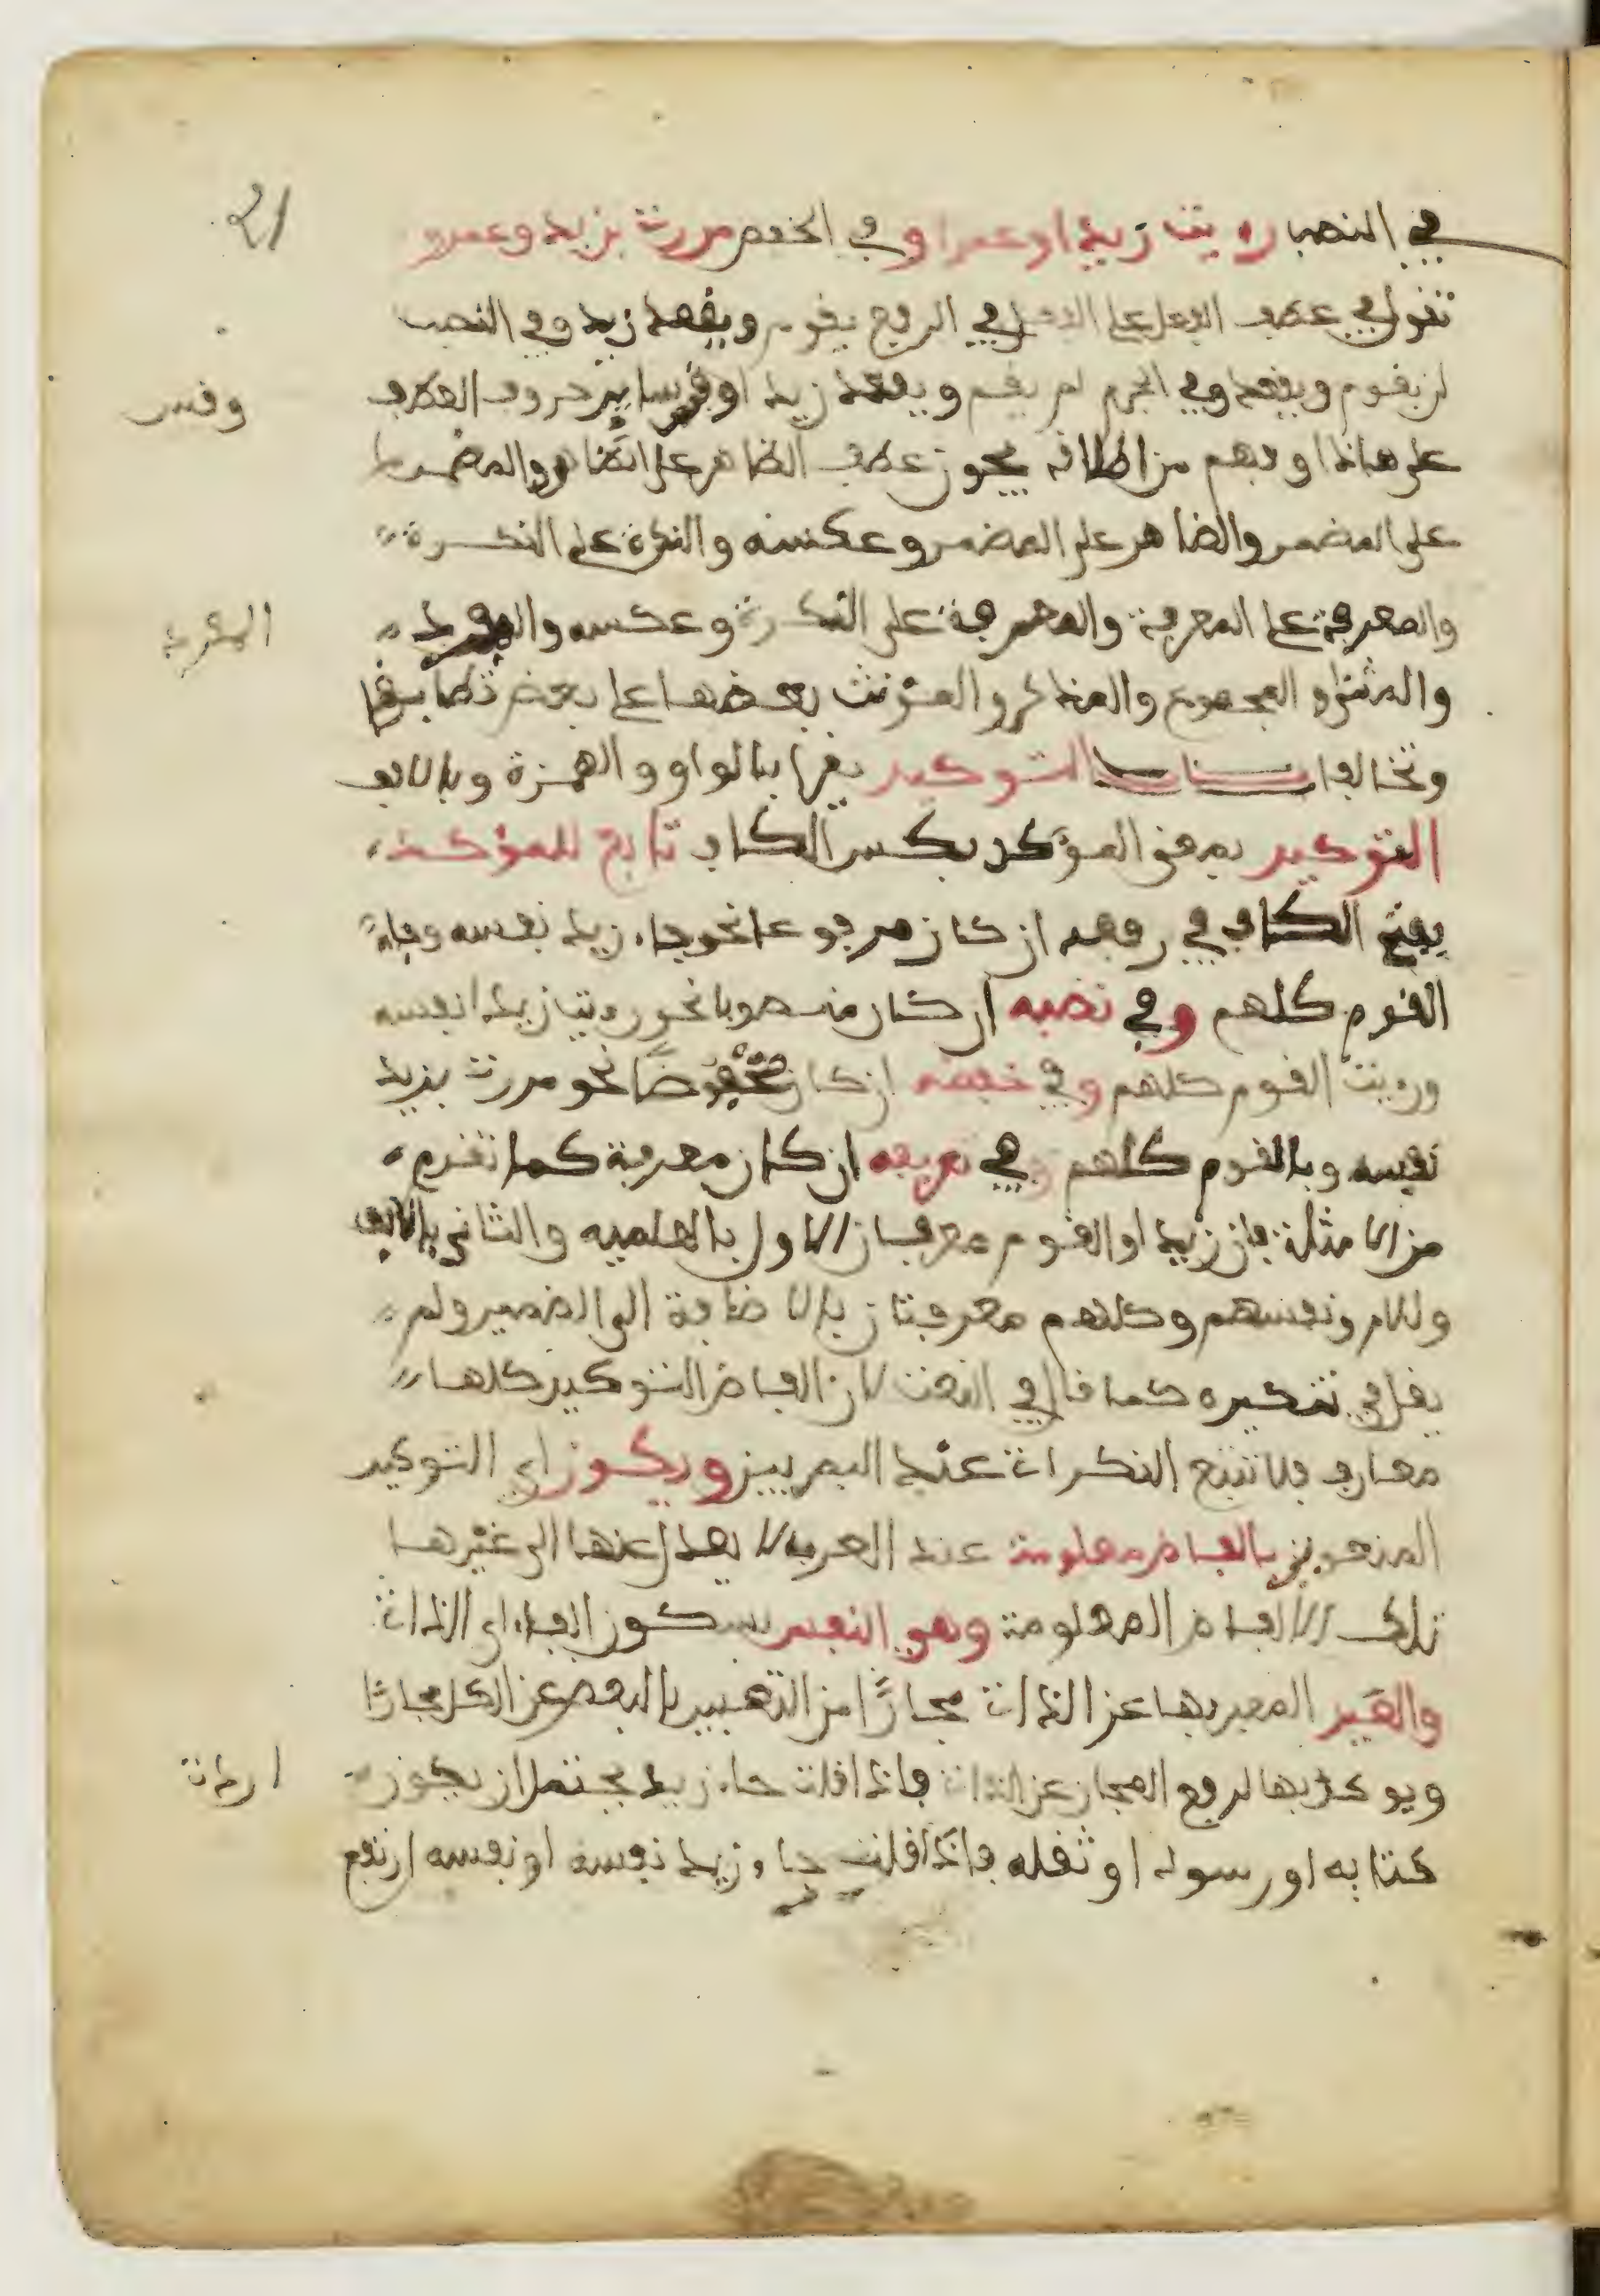 21
في النصب رءيت زيدا وعمرا وفي الخفض مررت بزيد وعمرو
تقول في عطف الفعل على الفعل في الرفع يقوم ويقعد زيد وفي النصب
لن يقوم ويقعد وفي الجزم لم يقم ويقعد زيد وقس ساير حروف العطف
وقس
على هاذا وفهم من اطلاقه يجوز عطف الظاهر على الظاهر والمضمر
على المضمر والضاهر على المضمر وعكسه والنكرة على النكرة
والمعرفة على المعرفة والمعرفة على النكرة وعكسه والمفرد
المفرد
والمثنى والمجموع والمذكر والمؤنث بعضها على بعض تطابقا
وتخالفا باب التوكيد يقرا بالواو والهمزة وبالالف
التوكيد بمعنى المؤكد بكسر الكاف تابع للمؤكد
بفتح الكاف في رفعه ان كان مرفوعا نحو جاء زيد نفسه وجاء
القوم كلهم وفي نصبه ان كان منصوبا نحو رءيت زيدا نفسه
ورءيت القوم كلهم وفي خفضه ان كان مخفوضا نحو مررت بزيد
نفسه وبالقوم كلهم وفي تعريفه ان كان معرفة كما تقدم
من الامثلة فان زيدا والقوم معرفان الاول بالعلمية والثاني بالالف
ولام ونفسهم وكلهم معرفتان بالاضافة الى الضمير ولم
يقل في تنكيره كما قال في النعت لان الفاظ التوكيد كلها
معارف فلا تتبع النكرات عند البصريين ويكون اي التوكيد
المنعوين بالفاظ معلومة عند العرب لا يعدل عنها الى غيرها
تلك الالفاظ المعلومة وهو النفس بسكون الفاء اي الذات
والعين المعبر بها عن الذات مجازا من التعبير بالبعض عن الكل مجازا
ويوكد بها لرفع المجاز عن الذات فاذا قلت جاء زيد يحتمل ان يكون
كتابه او رسوله او ثقله فاذا قلت جاء زيد نفسه او نفسه ارتفع